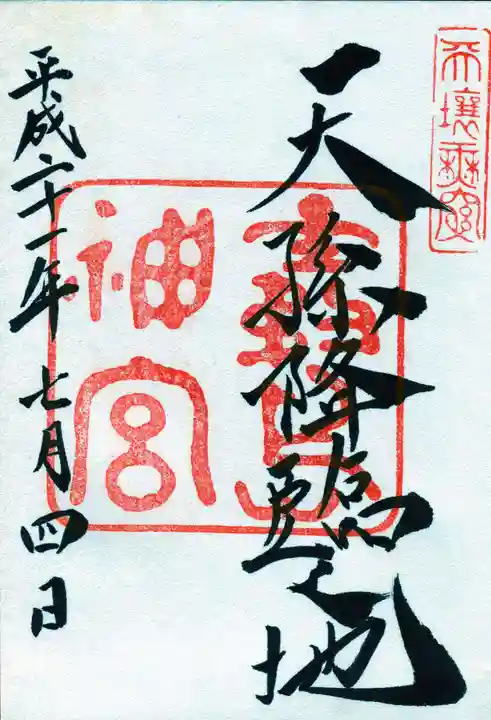 天壌無窮
天孫降臨之地
高千穂
神宮
平成二十一年七月四日